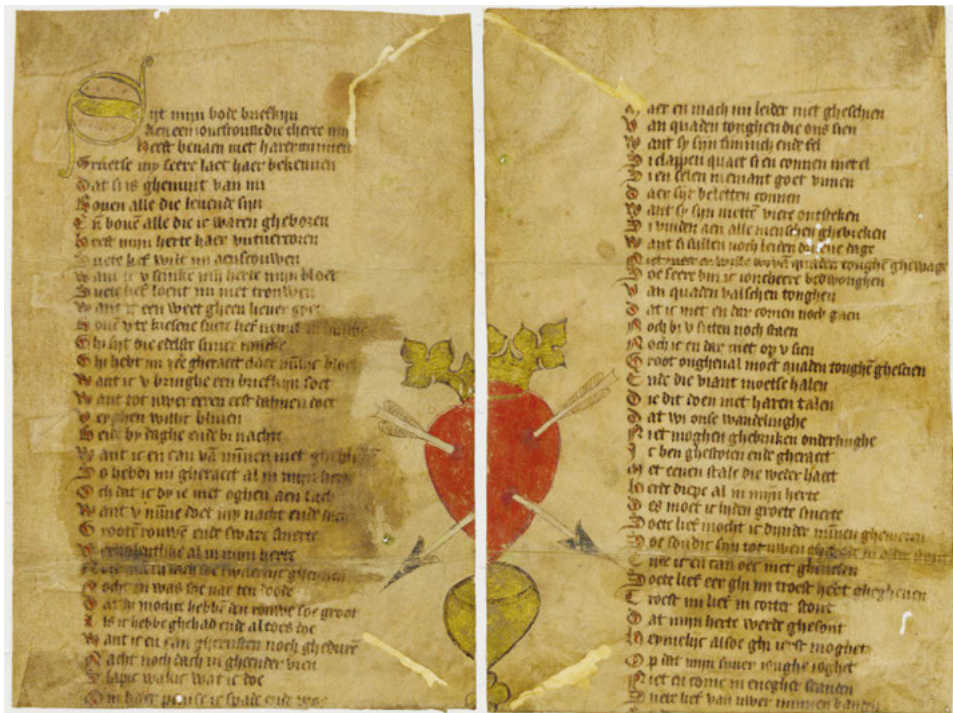 Sijt mijn bode briefkijn
Aen een ioncfrouwe die therte mijn
Heeft beuaen met harer minnen
Gruetse my seere laet haer bekennen
Dat si is ghemint van mi
Bouen alle die leuende sijn
Eñ bouē alle die ie waren gheboren
heeft mijn herte haer vutuercoren
Suete lief wilt mi aenscouwen
Want ic v scinke mijn herte mijn bloet
Suete lief loent mi met trouwen
Want ic een weet gheen lieuer goet
Ghi sijt die edelste
Ghi hebt mi gheraect
Want ic v bringhe een briefkijn soet
Want tot uwer eeren eest
willit bliuen
Beide by daghe ende bi nachte
Want ic en can vā minnen niet
So hebdi mi gheraect al in mijn herte
Och dat ic dy ie met oghen aen sach
Want v minne doet my nacht ende
Grooten rouwe ende sware smerte
al in mijn herte
Nocht en was soe nar ten doode
Dat hi mochte hebbē den rouwe soe groot
Als ic hebbe ghehad ende al toes doe
Want ic en can gherusten noch ghedurē
Nacht noch dach in gheender vren
Slapic wakic wat ic doe
Om haer peinse ic spade ende
Maer en mach mi leider niet ghescien
Van quaden tonghen die ons sien
Want sy sijn ende fel
Si clappen quaet si en connen niet el
Sien selen niemant goet
Daer sijt beletten connen
Want sy sijn metten viere ontsteken
Si vinden aen alle menschen ghebreken
Want si sullen noch leiden dage
quadē tonghē ghewaghe
Soe seere bin ic ioncheere bedwonghen
Van quaden valschen tonghen
Dat ic niet en dar comen noch gaen
Noch bi v sitten noch staen
Noch ic en dar niet op v sien
Groot ongheual moet quadē tonghē ghescien
Ende die viant moetse halen
Die dit doen met haren talen
Dat wi onse wandelinghe
Niet moghen ghebruken onderlinghe
Ic ben ghescoten ende gheraect
Met eenen strale die weder haect
herde diepe al in mijn herte
Des moet ic liden groete smerte
Soete lief mocht ic
Soe soudic sijn tot uwen
en can niet ghenesen
Soete lief eer ghi mi troest hebt ghegheuen
Troest mi lief in corter stont
Dat mijn herte werde ghesont
heymelijc alsoe ghi ierst moghet
Op dat mijn ioghet
Niet en come in enegher scanden
Suete lief van uwer minnen banden